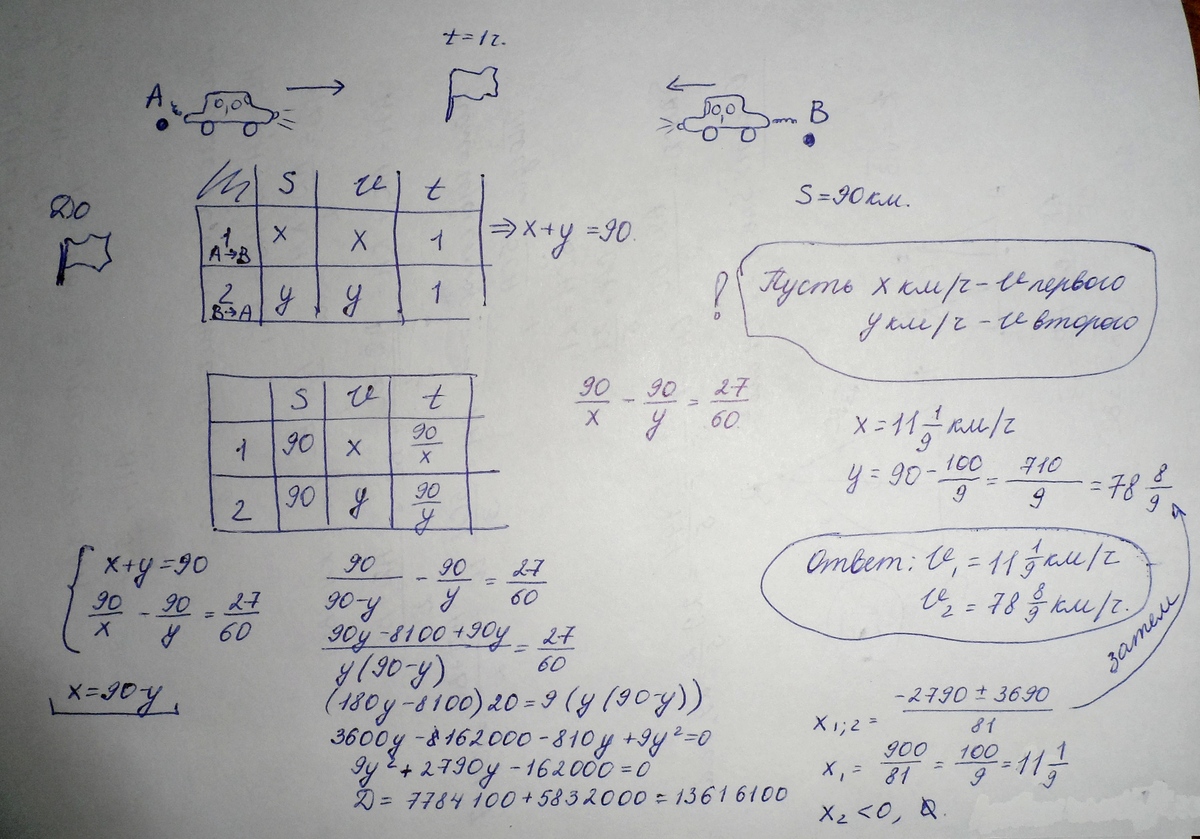 t=1ч.
A
B
До
S v t
1 A→B x x 1
2 B→A y y 1
⇒ x+y=90.
S=90км.
! Пусть x км/ч – v первого
y км/ч – v второго
S v t
1 90 x 90/x
2 90 y 90/y
90/x - 90/y = 27/60
x=11 1/9 км/ч
y = 90 - 100/9 = 710/9 = 78 8/9
Ответ: v₁ = 11 1/9 км/ч
v₂ = 78 8/9 км/ч.
затем
{ x+y=90
90/x - 90/y = 27/60
x=90-y
90/(90-y) - 90/y = 27/60
(90y-8100+90y)/(y(90-y)) = 27/60
(180y-8100)20=9(y(90-y))
3600y-162000-810y+9y²=0
9y²+2790y-162000=0
D=7784100+5832000=13616100
x₁;₂ = (-2790±3690)/81
x₁ = 900/81 = 100/9 = 11 1/9
x₂<0,